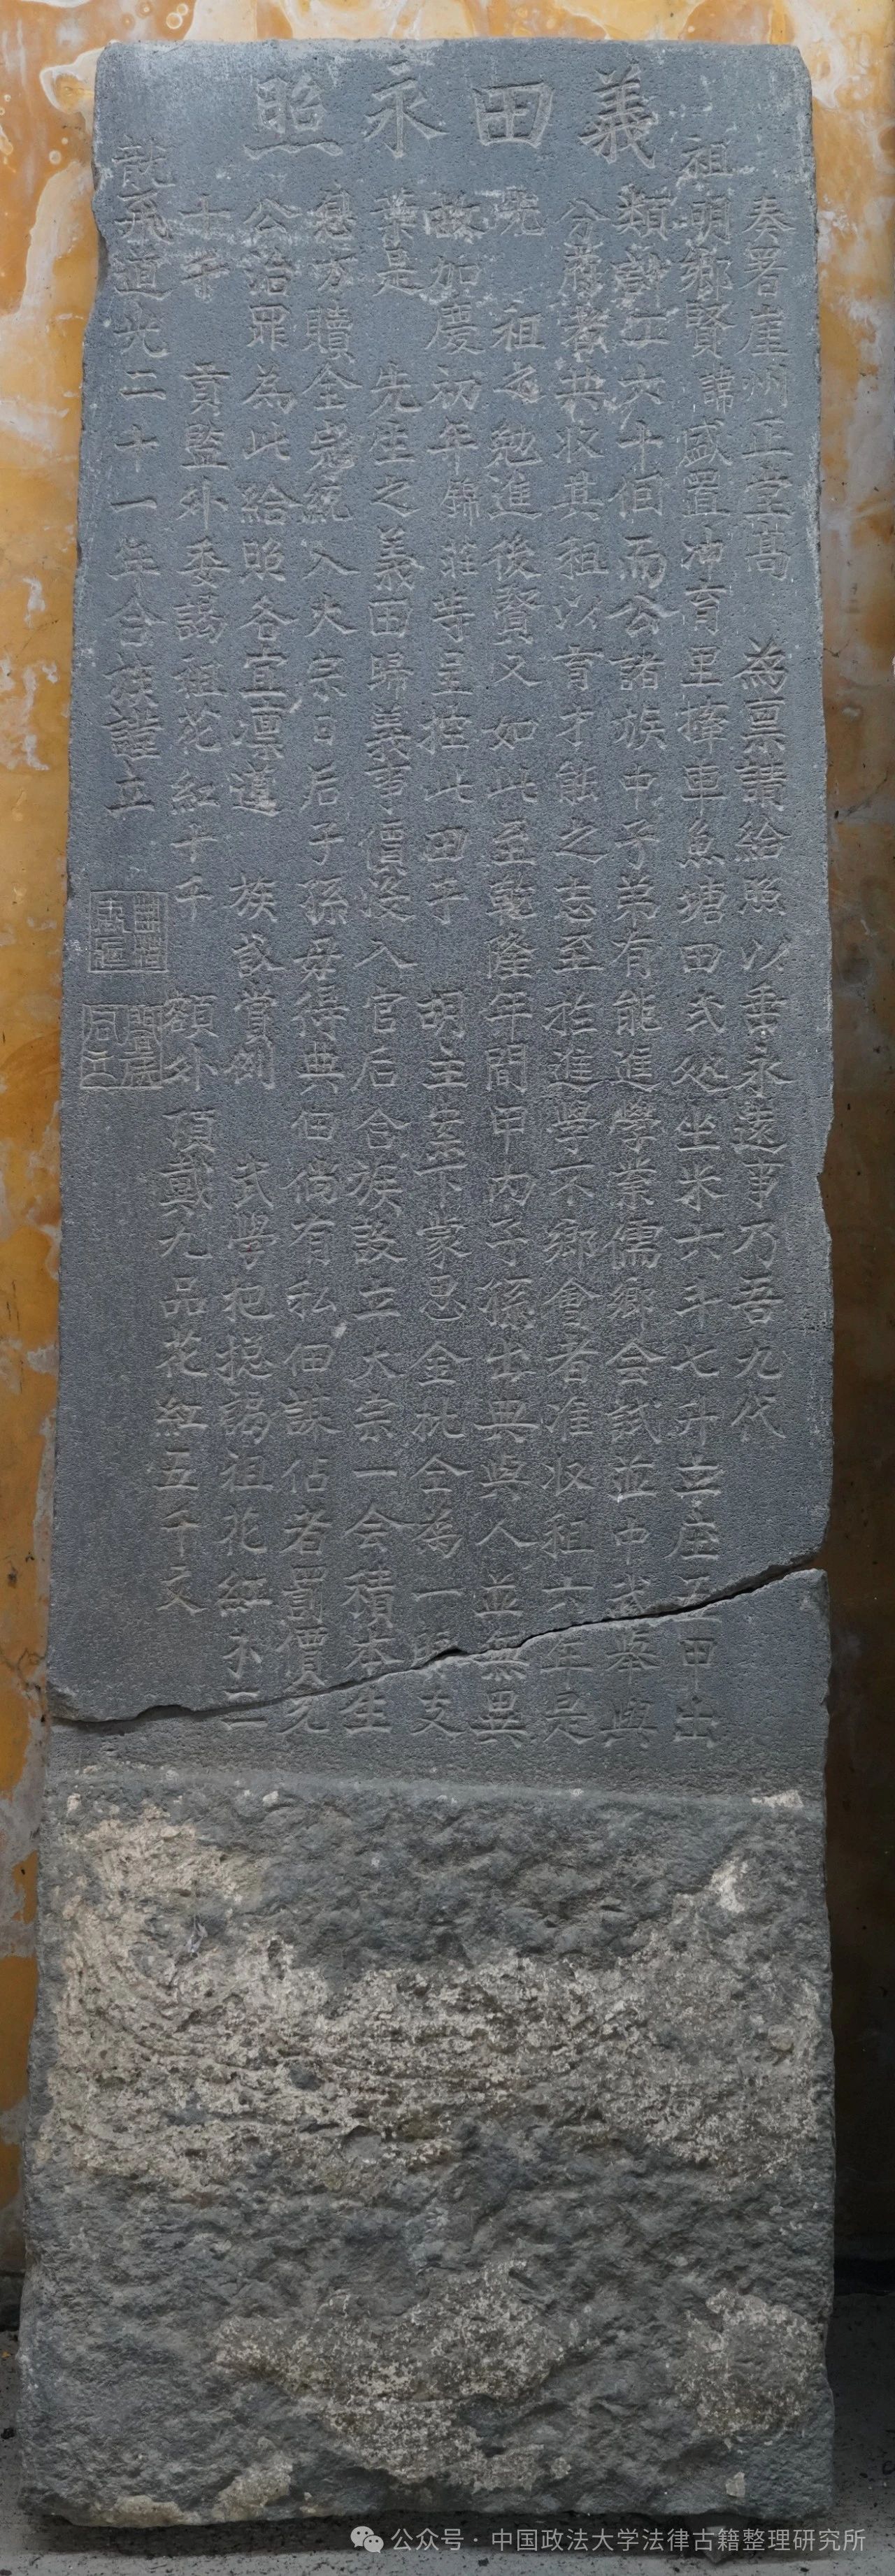 義田永照
奏署崖州正堂髙 為禀請給照以垂永遠事乃吾九代
祖明鄉賢諱盛置沖育里擇車魚塘田弍処坐米六斗七升立庄五甲出
類計工六十佃而公諸族中子弟有能進學業儒鄉会試並中武举與
分爵者共收其租以育才能之志至於進學不鄉會者准收租六年是
先 祖之勉進後賢又如此至乾隆年間甲内子孫出典與人並無異
故加慶初年錦莊等呈控此田子 胡主案下蒙恩金批仝為一脈支
葉是 先生之義田歸義事價沒入官后合族設立大宗一会積本生
息方贖全冠統入大宗日后子孫毋得典佃倘有私佃謀佔者罰價充
公治罪為此給照各宜凛遵 族議賞例 武學把捴謁祖花紅 二
十千 貢監外委謁祖花紅十千 額外頂戴九品花紅五千文
龍飛道光二十一年合族謹立
公众号·中国政法大学法律古籍整理研究所